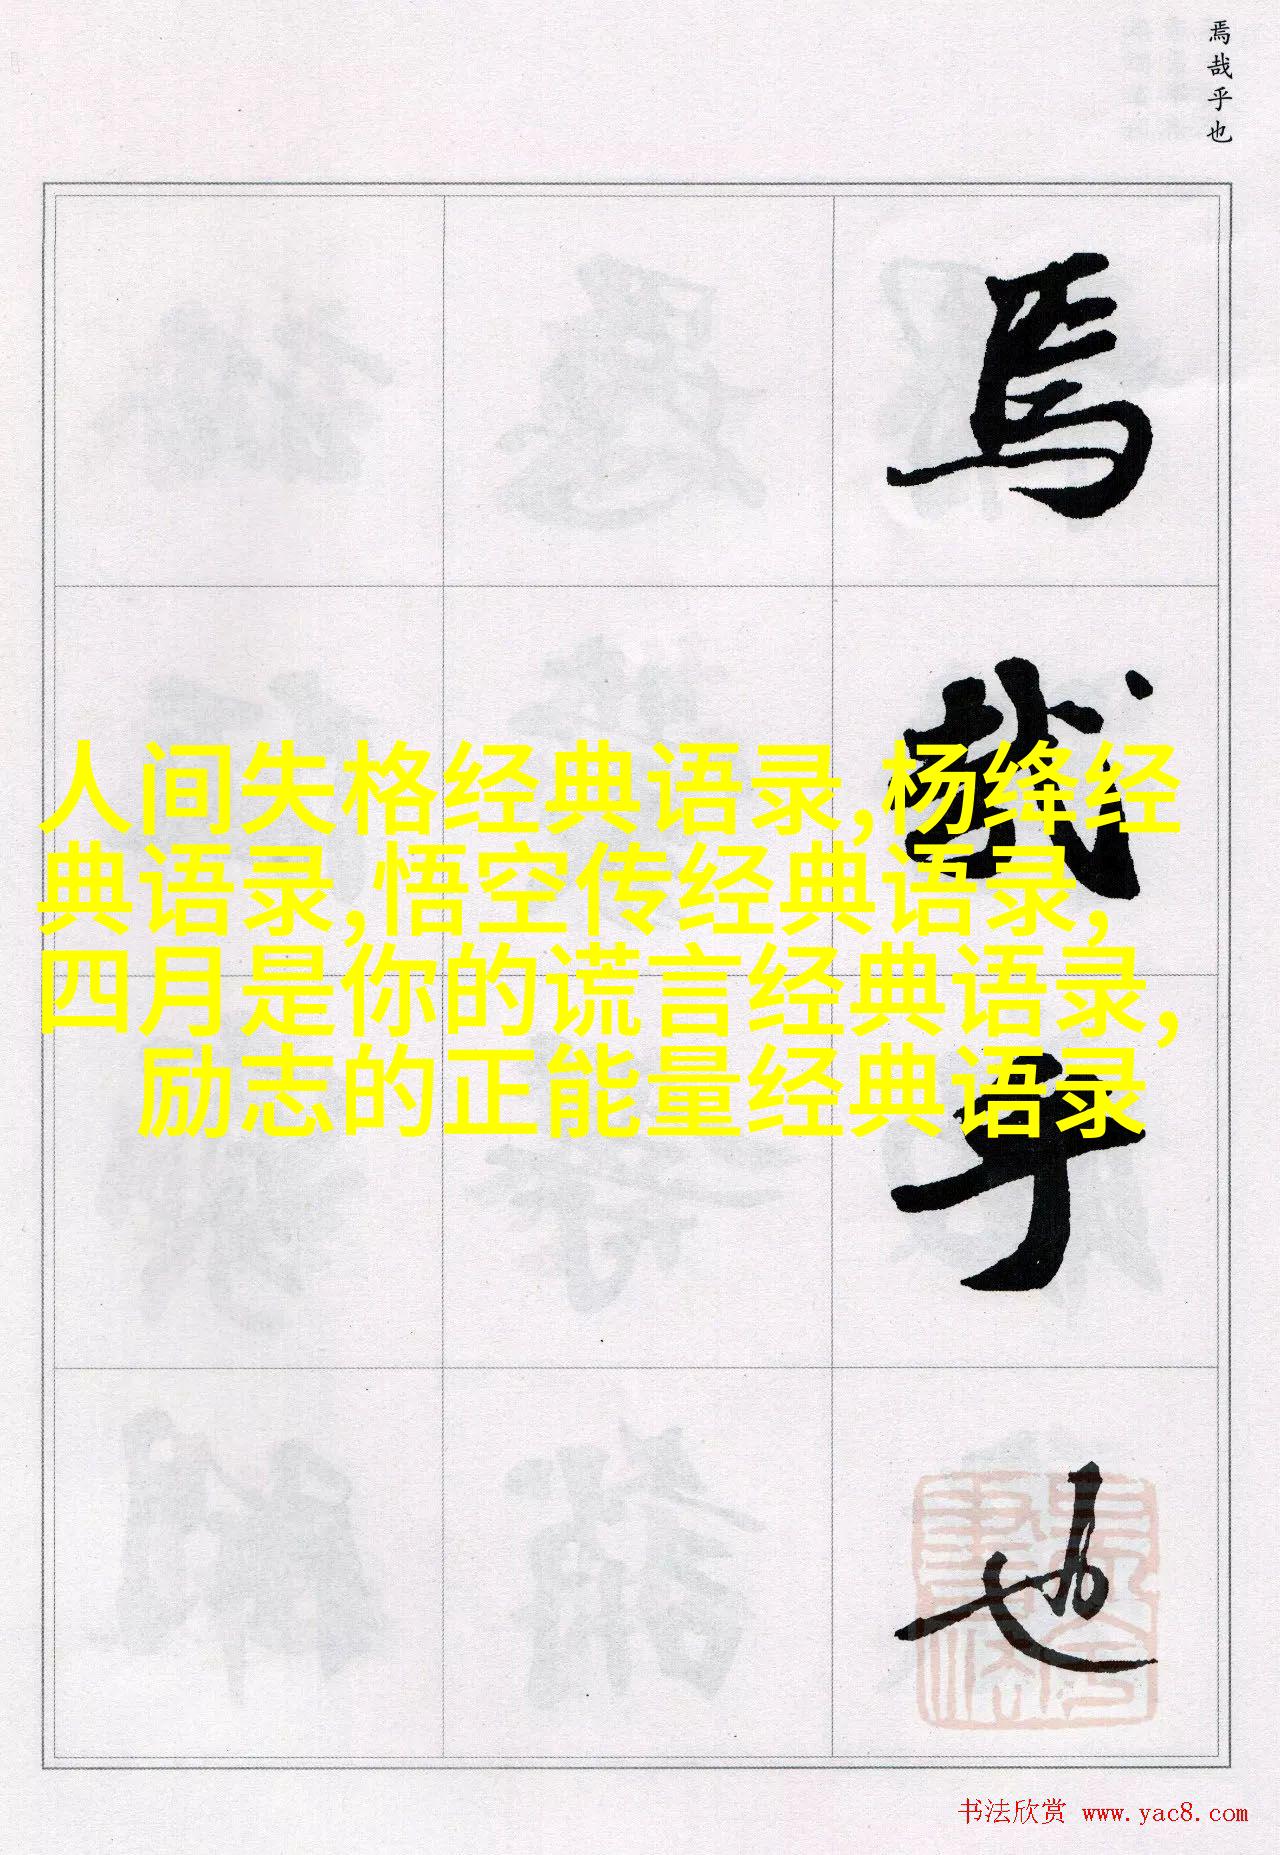 焉哉乎也
焉
哉
乎
也
人间失格经典语录,杨绛经
典语录,悟空传经典语录,
四月是你的谎言经典语录,
励志的正能量经典语录
书法欣赏 www.yac8.com